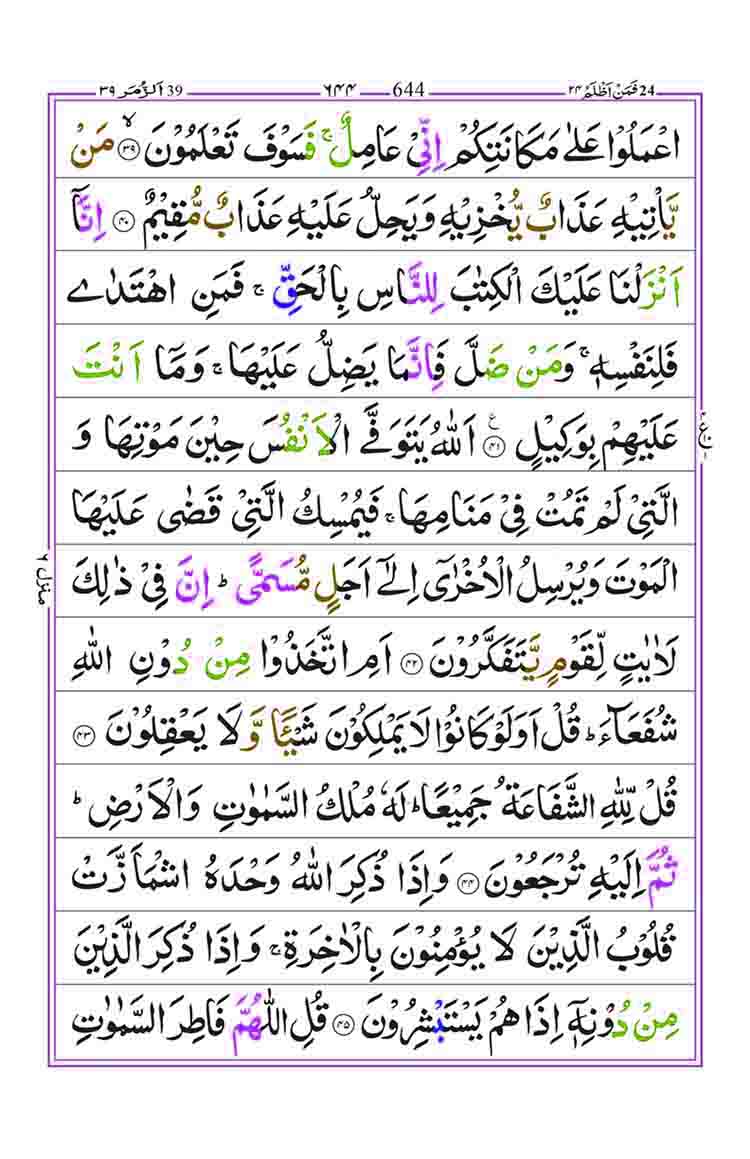 24 فَمَنْ اَظْلَمُ ٢٤
644 ٦٤٤
39 اَلزُّمَر ٣٩
اعْمَلُوْا عَلٰى مَكَانَتِكُمْ اِنِّىْ عَامِلٌ ۚ فَسَوْفَ تَعْلَمُوْنَ ۙ‏﴿۳۹﴾ مَنْ
يَّاْتِيْهِ عَذَابٌ يُّخْزِيْهِ وَيَحِلُّ عَلَيْهِ عَذَابٌ مُّقِيْمٌ ﴿۴۰﴾ اِنَّاۤ
اَنْزَلْنَا عَلَيْكَ الْكِتٰبَ لِلنَّاسِ بِالْحَقِّ ۚ فَمَنِ اهْتَدٰى
فَلِنَفْسِهٖ ۚ وَمَنْ ضَلَّ فَاِنَّمَا يَضِلُّ عَلَيْهَا ۚ وَمَاۤ اَنْتَ
عَلَيْهِمْ بِوَكِيْلٍ ﴿۴۱﴾ ع اَللّٰهُ يَتَوَفَّى الْاَنْفُسَ حِيْنَ مَوْتِهَا وَ
الَّتِىْ لَمْ تَمُتْ فِىْ مَنَامِهَا ۚ فَيُمْسِكُ الَّتِىْ قَضٰى عَلَيْهَا
الْمَوْتَ وَيُرْسِلُ الْاُخْرٰٓى اِلٰٓى اَجَلٍ مُّسَمًّى ؕ اِنَّ فِىْ ذٰلِكَ
لَاٰيٰتٍ لِّقَوْمٍ يَّتَفَكَّرُوْنَ ﴿۴۲﴾ اَمِ اتَّخَذُوْا مِنْ دُوْنِ اللّٰهِ
شُفَعَآءَ ؕ قُلْ اَوَلَوْ كَانُوْا لَا يَمْلِكُوْنَ شَيْـًٔا وَّلَا يَعْقِلُوْنَ ﴿۴۳﴾
قُلْ لِّلّٰهِ الشَّفَاعَةُ جَمِيْعًا ؕ لَهٗ مُلْكُ السَّمٰوٰتِ وَالْاَرْضِ ؕ
ثُمَّ اِلَيْهِ تُرْجَعُوْنَ ﴿۴۴﴾ وَاِذَا ذُكِرَ اللّٰهُ وَحْدَهُ اشْمَاَزَّتْ
قُلُوْبُ الَّذِيْنَ لَا يُؤْمِنُوْنَ بِالْاٰخِرَةِ ۚ وَاِذَا ذُكِرَ الَّذِيْنَ
مِنْ دُوْنِهٖۤ اِذَا هُمْ يَسْتَبْشِرُوْنَ ﴿۴۵﴾ قُلِ اللّٰهُمَّ فَاطِرَ السَّمٰوٰتِ
منزل ٦